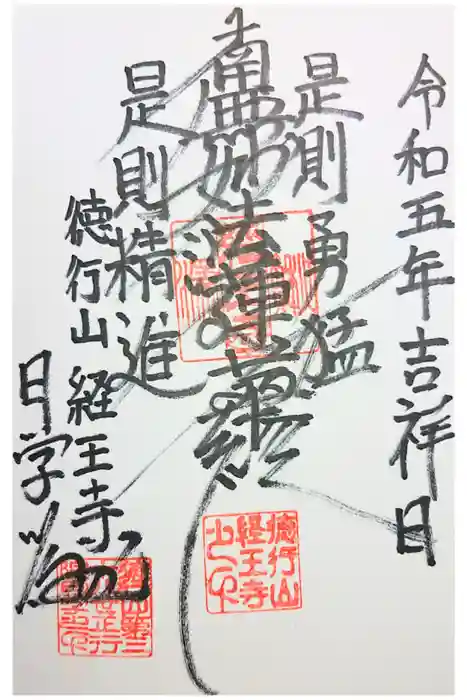 令和五年吉祥日
是則勇猛
南無妙法蓮華経
是則精進
徳行山経王寺
日学
徳行山
経王寺
之印